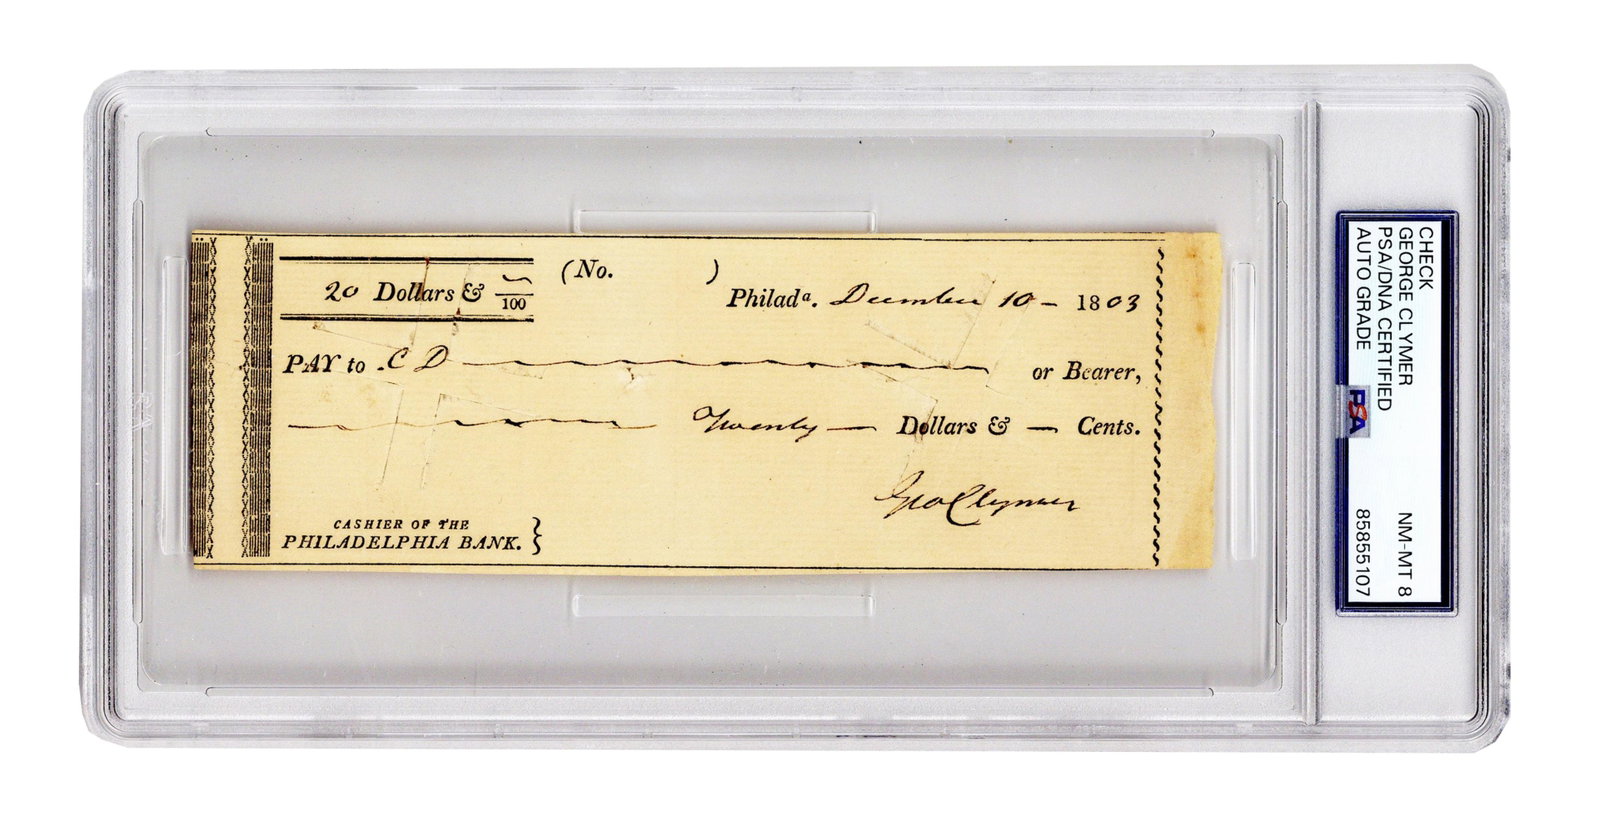 20 Dollars & ~/100
(No. )
Philadª. December 10 - 1803
PAY to .C D ——— or Bearer,
——— Twenty — Dollars & — Cents.
Geo Clymer
CASHIER OF THE
PHILADELPHIA BANK. }
CHECK
GEORGE CLYMER NM-MT 8
PSA/DNA CERTIFIED
AUTO GRADE 85855107
PSA